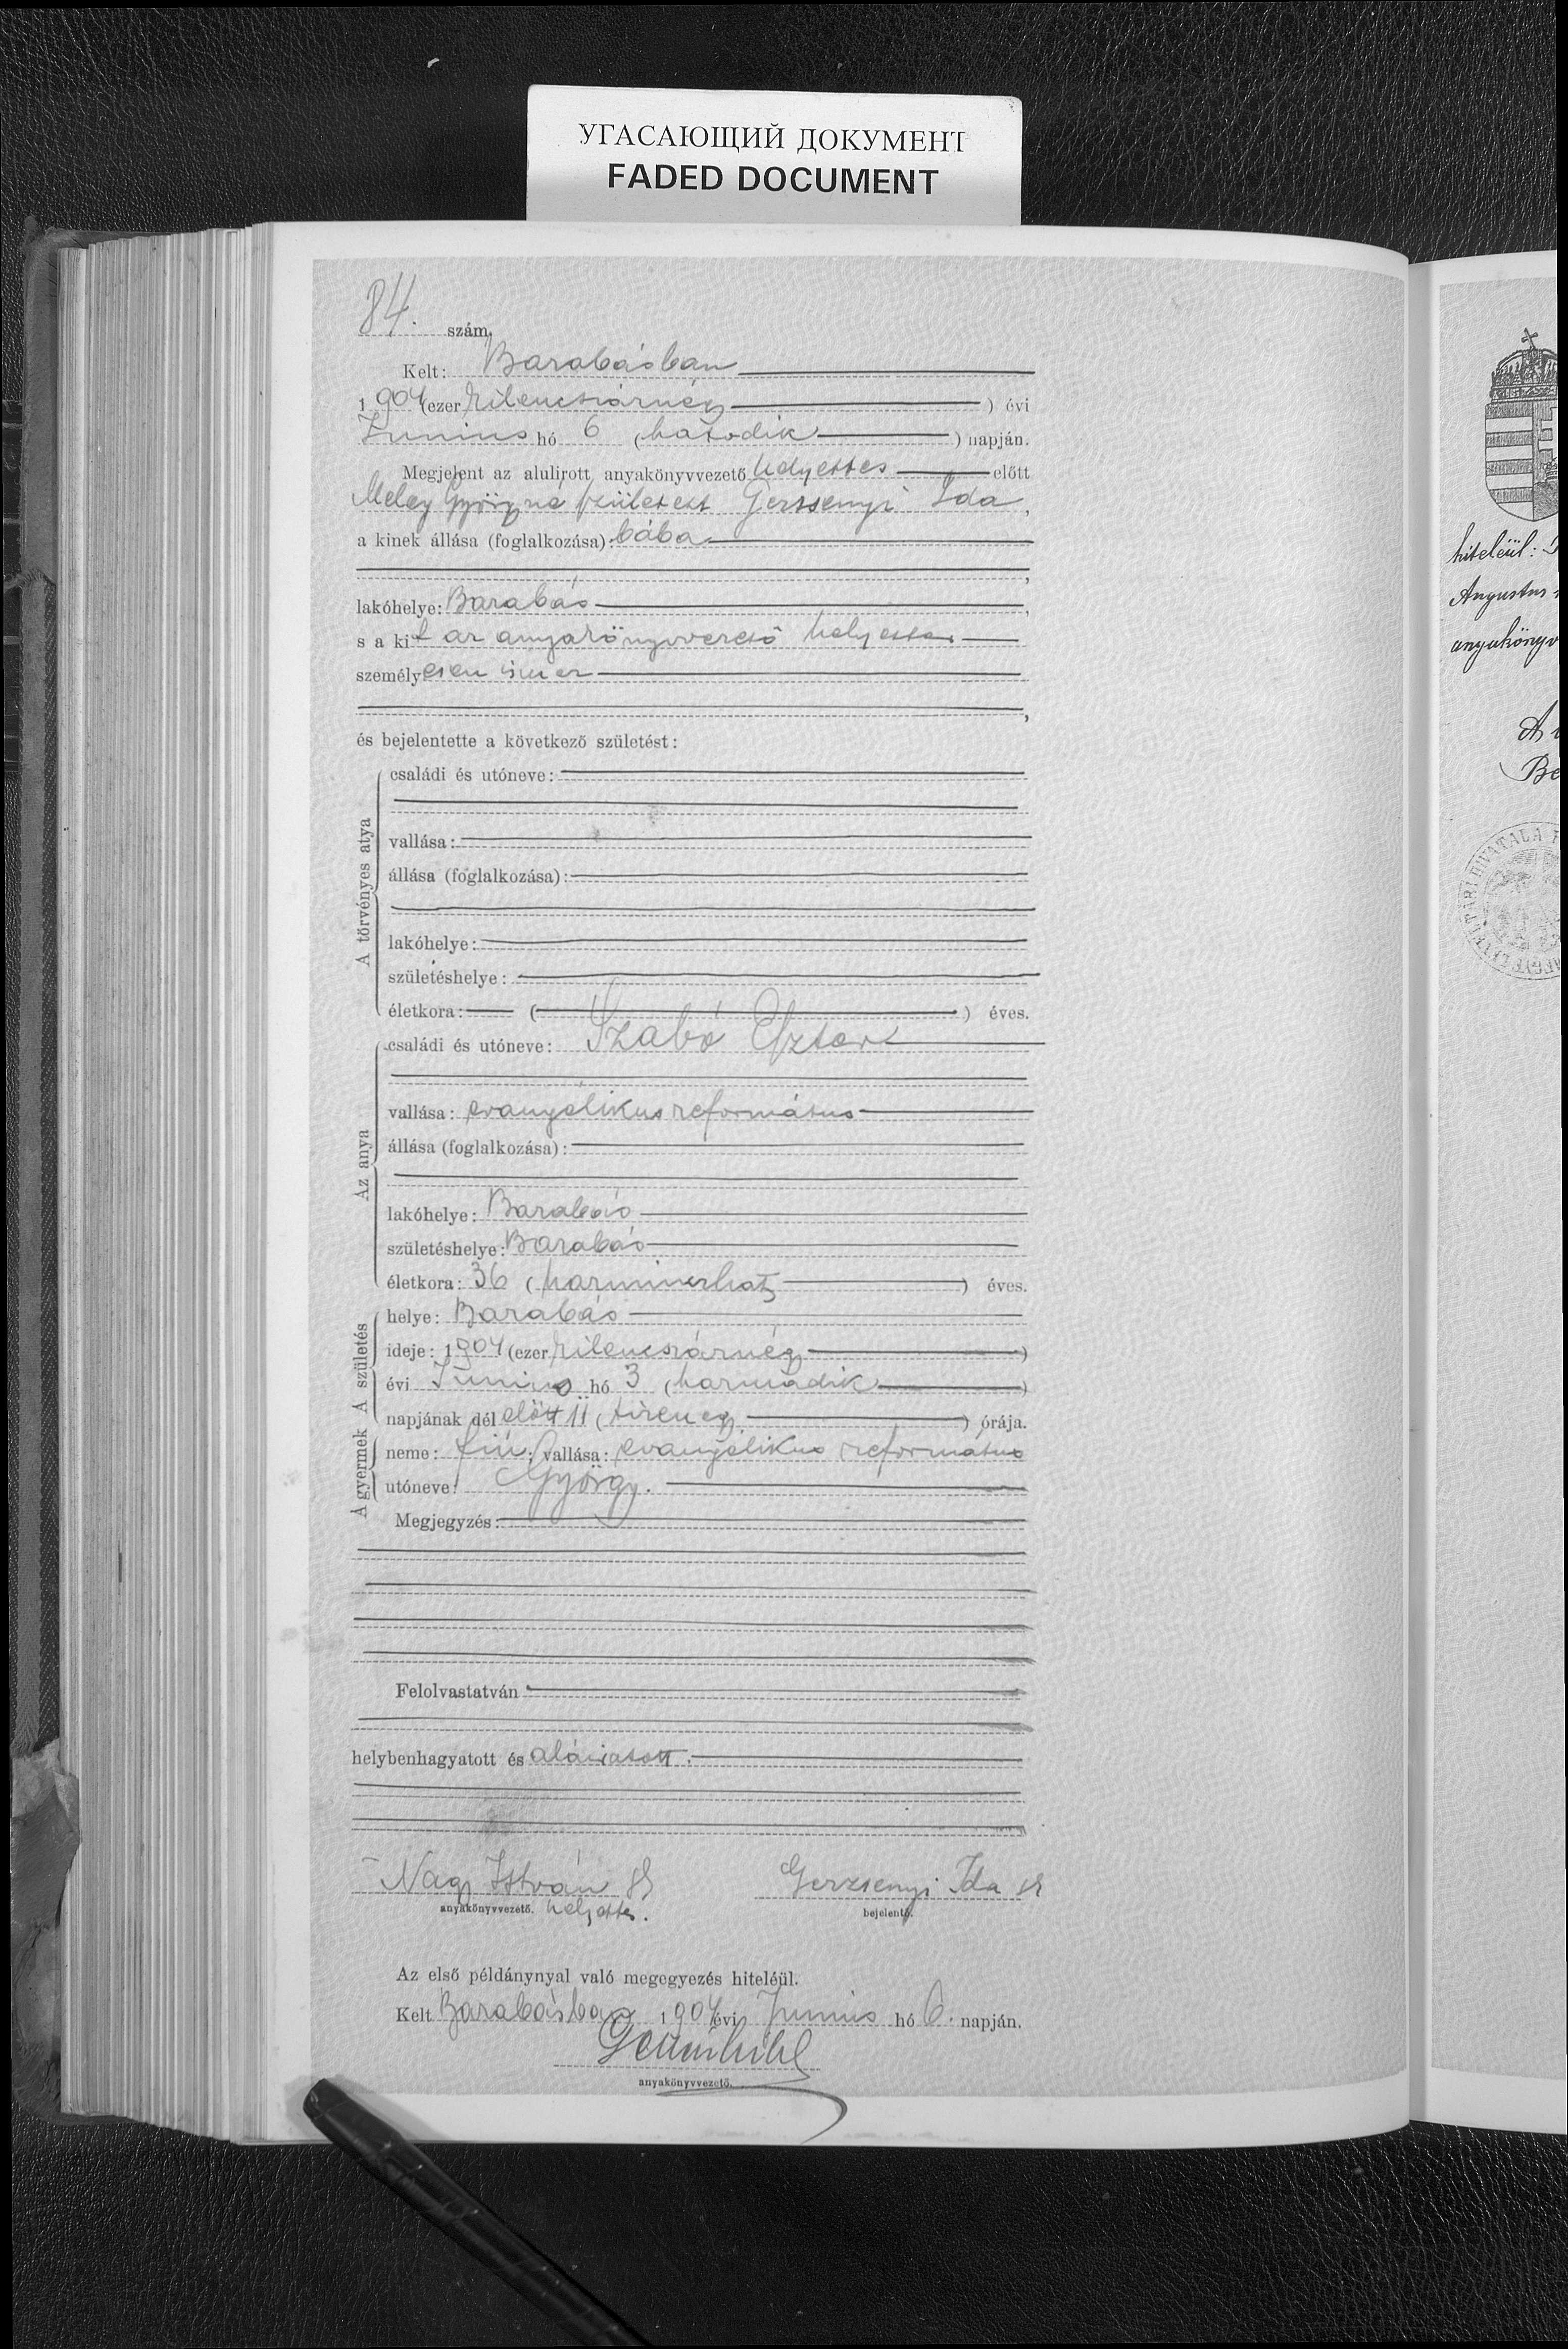 УГАСАЮЩИЙ ДОКУМЕНТ
FADED DOCUMENT
84. szám.
Kelt: Barabásban
1904 (ezer kilencszáznégy) évi
Junius hó 6 (hatodik) napján.
Megjelent az alulirott anyakönyvvezető helyettes előtt
Meley Györgyné született Gerzsenyi Ida,
a kinek állása (foglalkozása): bába
lakóhelye: Barabás,
s a kit az anyakönyvvezető helyettes
személyesen ismer,
és bejelentette a következő születést:
A törvényes atya
családi és utóneve:
vallása:
állása (foglalkozása):
lakóhelye:
születéshelye:
életkora: ( ) éves.
Az anya
családi és utóneve: Szabó Eszter
vallása: evangélikus református
állása (foglalkozása):
lakóhelye: Barabás
születéshelye: Barabás
életkora: 36 (harminczhat) éves.
A születés
helye: Barabás
ideje: 1904 (ezer kilencszáznégy)
évi Junius hó 3 (harmadik)
napjának dél előtt 11 (tizenegy) órája.
A gyermek
neme: fiú; vallása: evangélikus református
utóneve: György.
Megjegyzés:
Felolvastatván
helybenhagyatott és aláiratott.
Nagy István
anyakönyvvezető. helyettes.
Gerzsenyi Ida
bejelentő.
Az első példánynyal való megegyezés hiteléül.
Kelt Barabásban 1904 évi Junius hó 6. napján.
anyakönyvvezető.
hiteléül:
Augustus